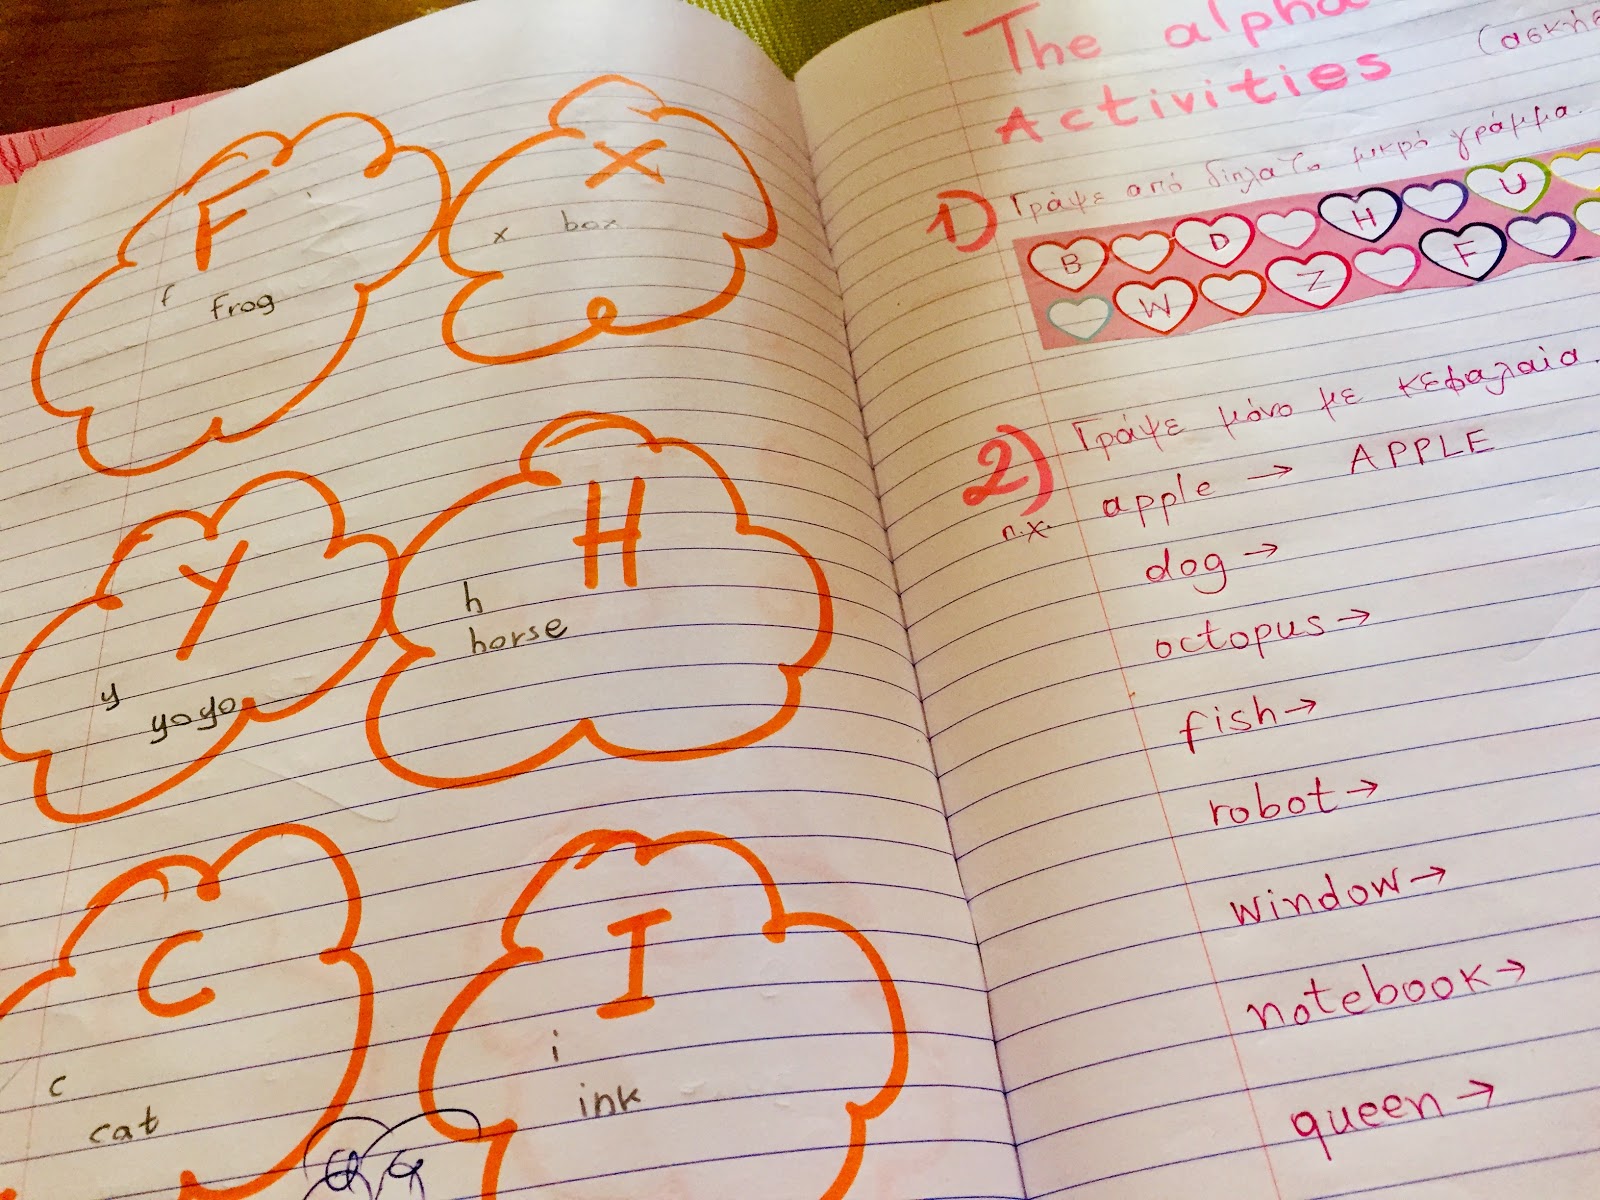 F
f frog
X
x box
Y
y
yoyo
H
h
horse
C
c
cat
I
i
ink
The alpha
Activities
(ασκήσ
1) Γράψε από δίπλα το μικρό γράμμα.
B D H U
W Z F
2) Γράψε μόνο με κεφαλαία.
π.χ. apple → APPLE
dog →
octopus →
fish →
robot →
window →
notebook →
queen →